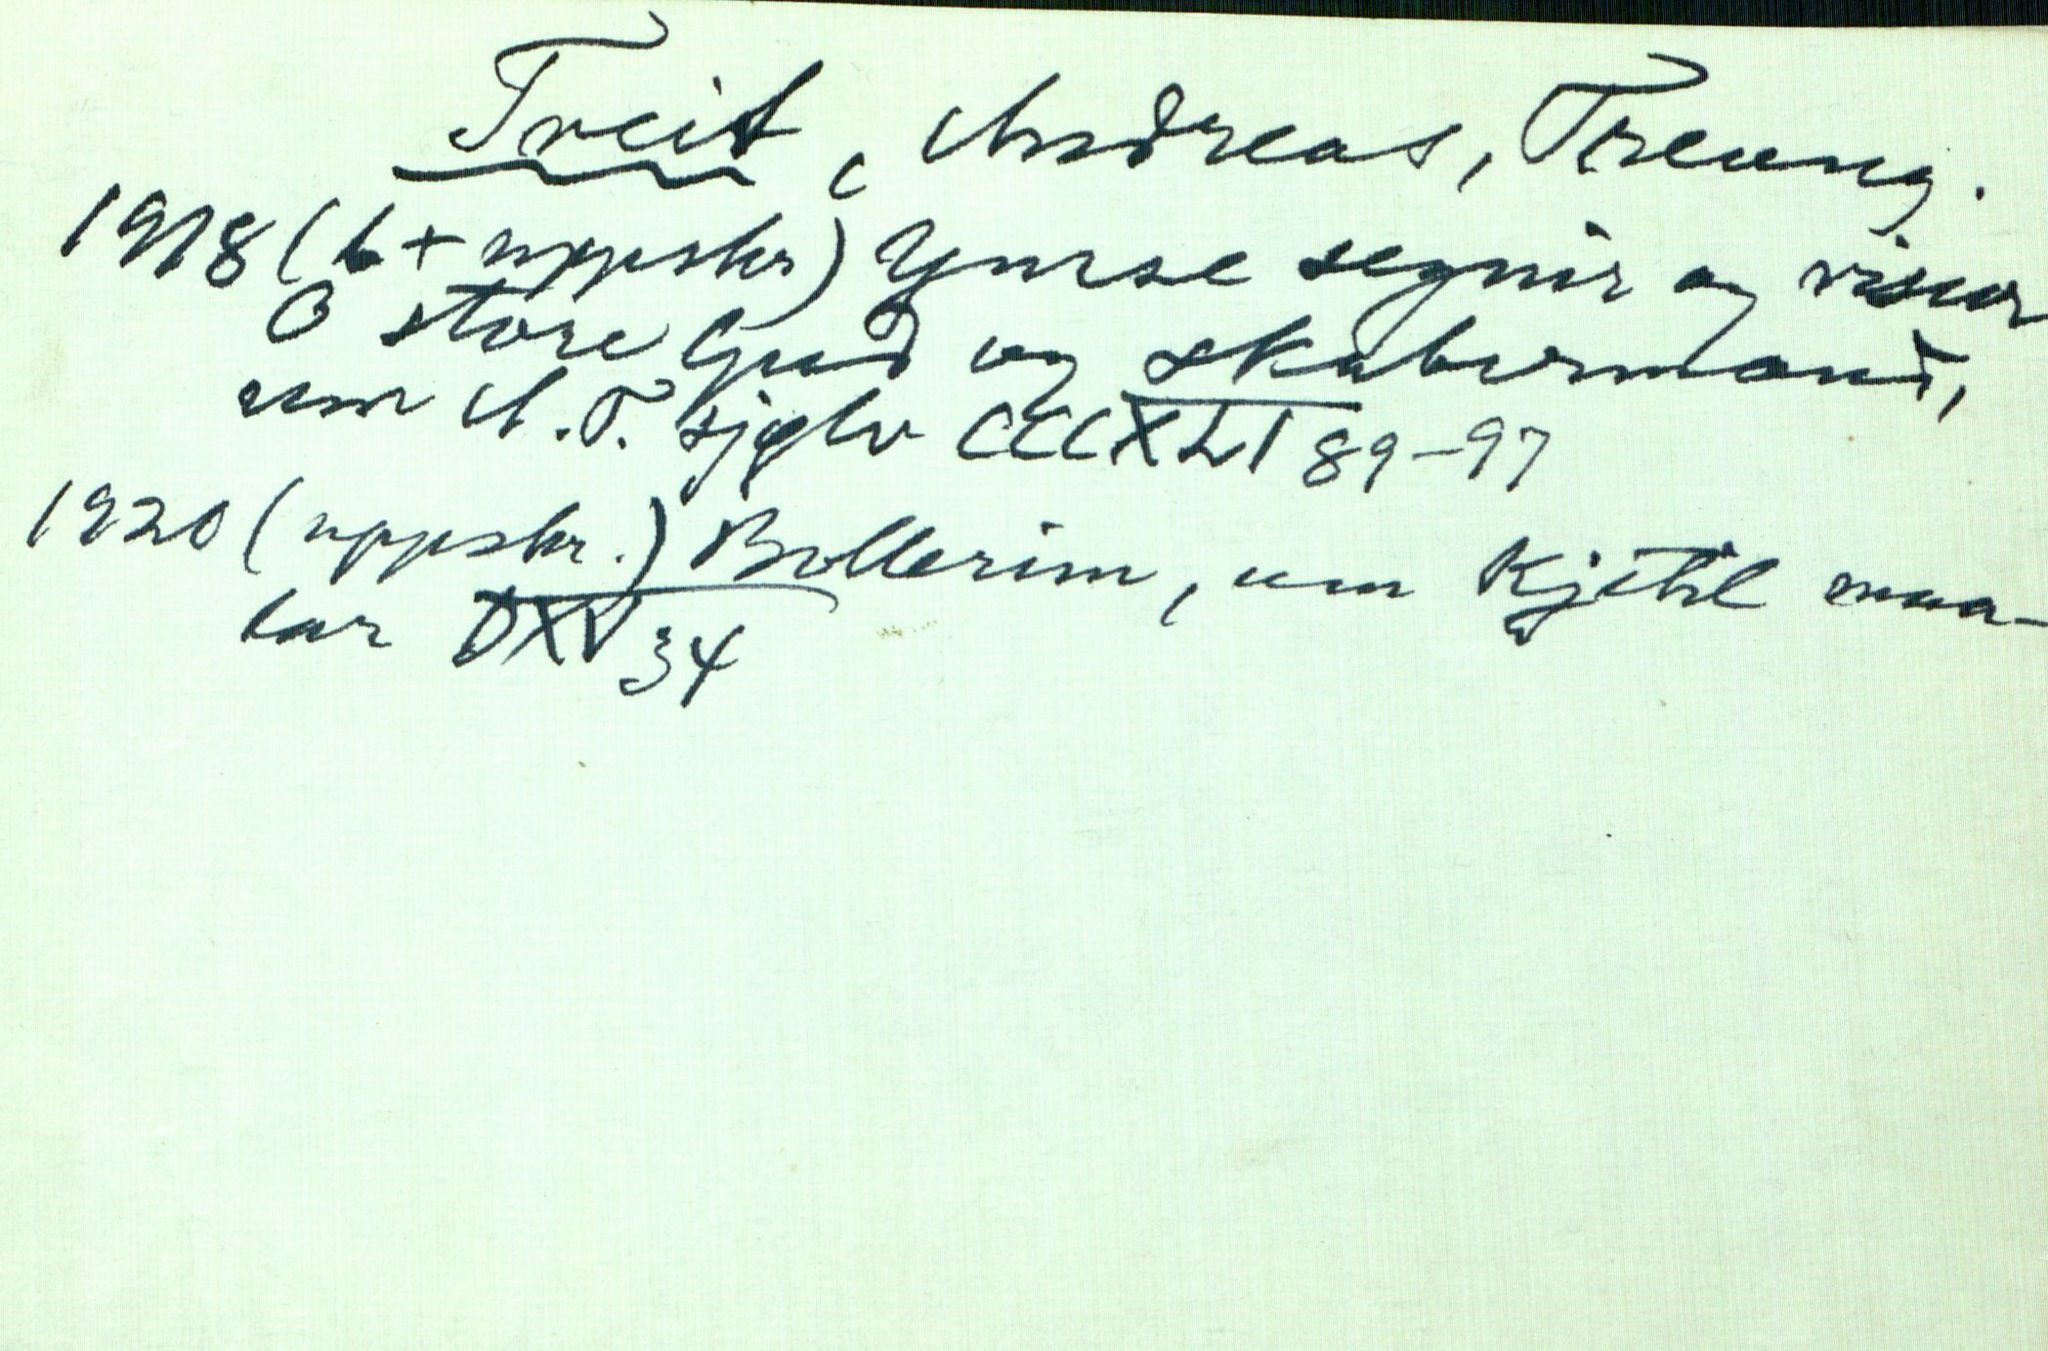 Tveit, Andreas, Treung.
1918 (b + uppskr) Ymse segnir og visur
O store Gud og skabermand,
um A. T. sjølv CCCXLI 89-97
1920 (uppskr.) Bollerim, um Kjetil maa-
lar DXV 34